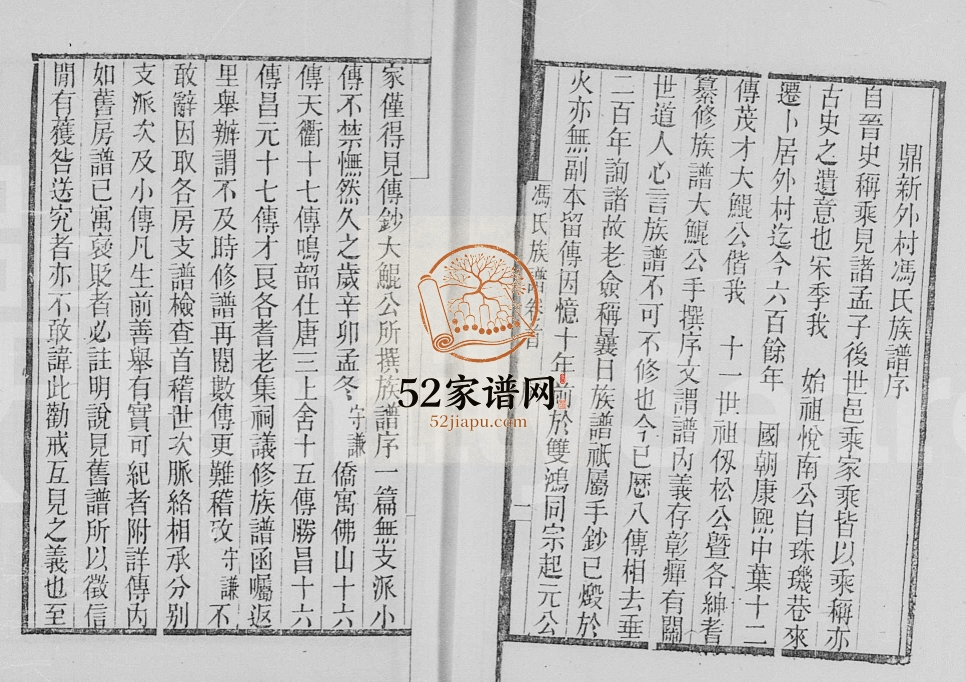 鼎新外村馮氏族譜序
自晉史稱乘見諸孟子後世邑乘家乘皆以乘稱亦
古史之遺意也宋季我 始祖悅南公自珠璣巷來
遷卜居外村迄今六百餘年 國朝康熙中葉十二
傳茂才大鯤公偕我 十一世祖仭松公暨各紳耆
纂修族譜大鯤公手撰序文謂譜內義存彰癉有關
世道人心言族譜不可不修也今已歷八傳相去垂
二百年詢諸故老僉稱曩日族譜祇屬手鈔已燬於
火亦無副本留傳因憶十年前於雙鴻同宗起元公
馮氏族譜卷首
一
家僅得見傳鈔大鯤公所撰族譜序一篇無支派小
傳不禁憮然久之歲辛卯孟冬守謙僑寓佛山十六
傳天衢十七傳鳴韶仕唐三上舍十五傳勝昌十六
傳昌元十七傳才良各耆老集祠議修族譜函囑返
里舉辦謂不及時修譜再閱數傳更難稽攷守謙不
敢辭因取各房支譜檢查首稽世次脈絡相承分別
支派次及小傳凡生前善舉有實可紀者附詳傳內
如舊房譜已寓褒貶者必註明說見舊譜所以徵信
閒有獲咎送究者亦不敢諱此勸戒互見之義也至
52家谱网
52jiapu.com